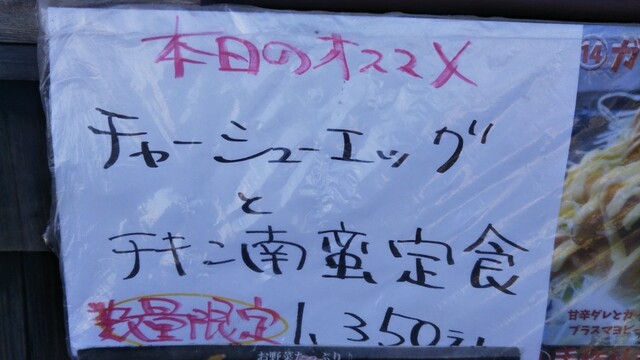 本日のオススメ
チャーシューエッグ
と
チキン南蛮定食
数量限定 1,350元
⑭ガ
甘辛ダレとカ
プラスマヨビ
お野菜たっぷり♪